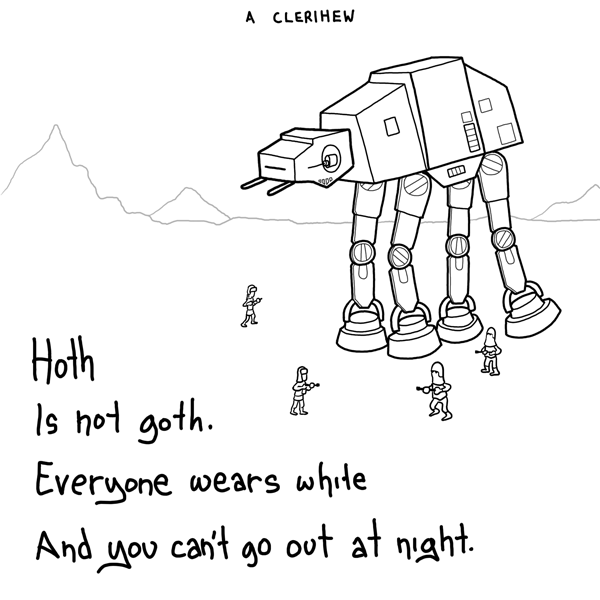 A CLERIHEW
Hoth
Is not goth.
Everyone wears white
And you can't go out at night.